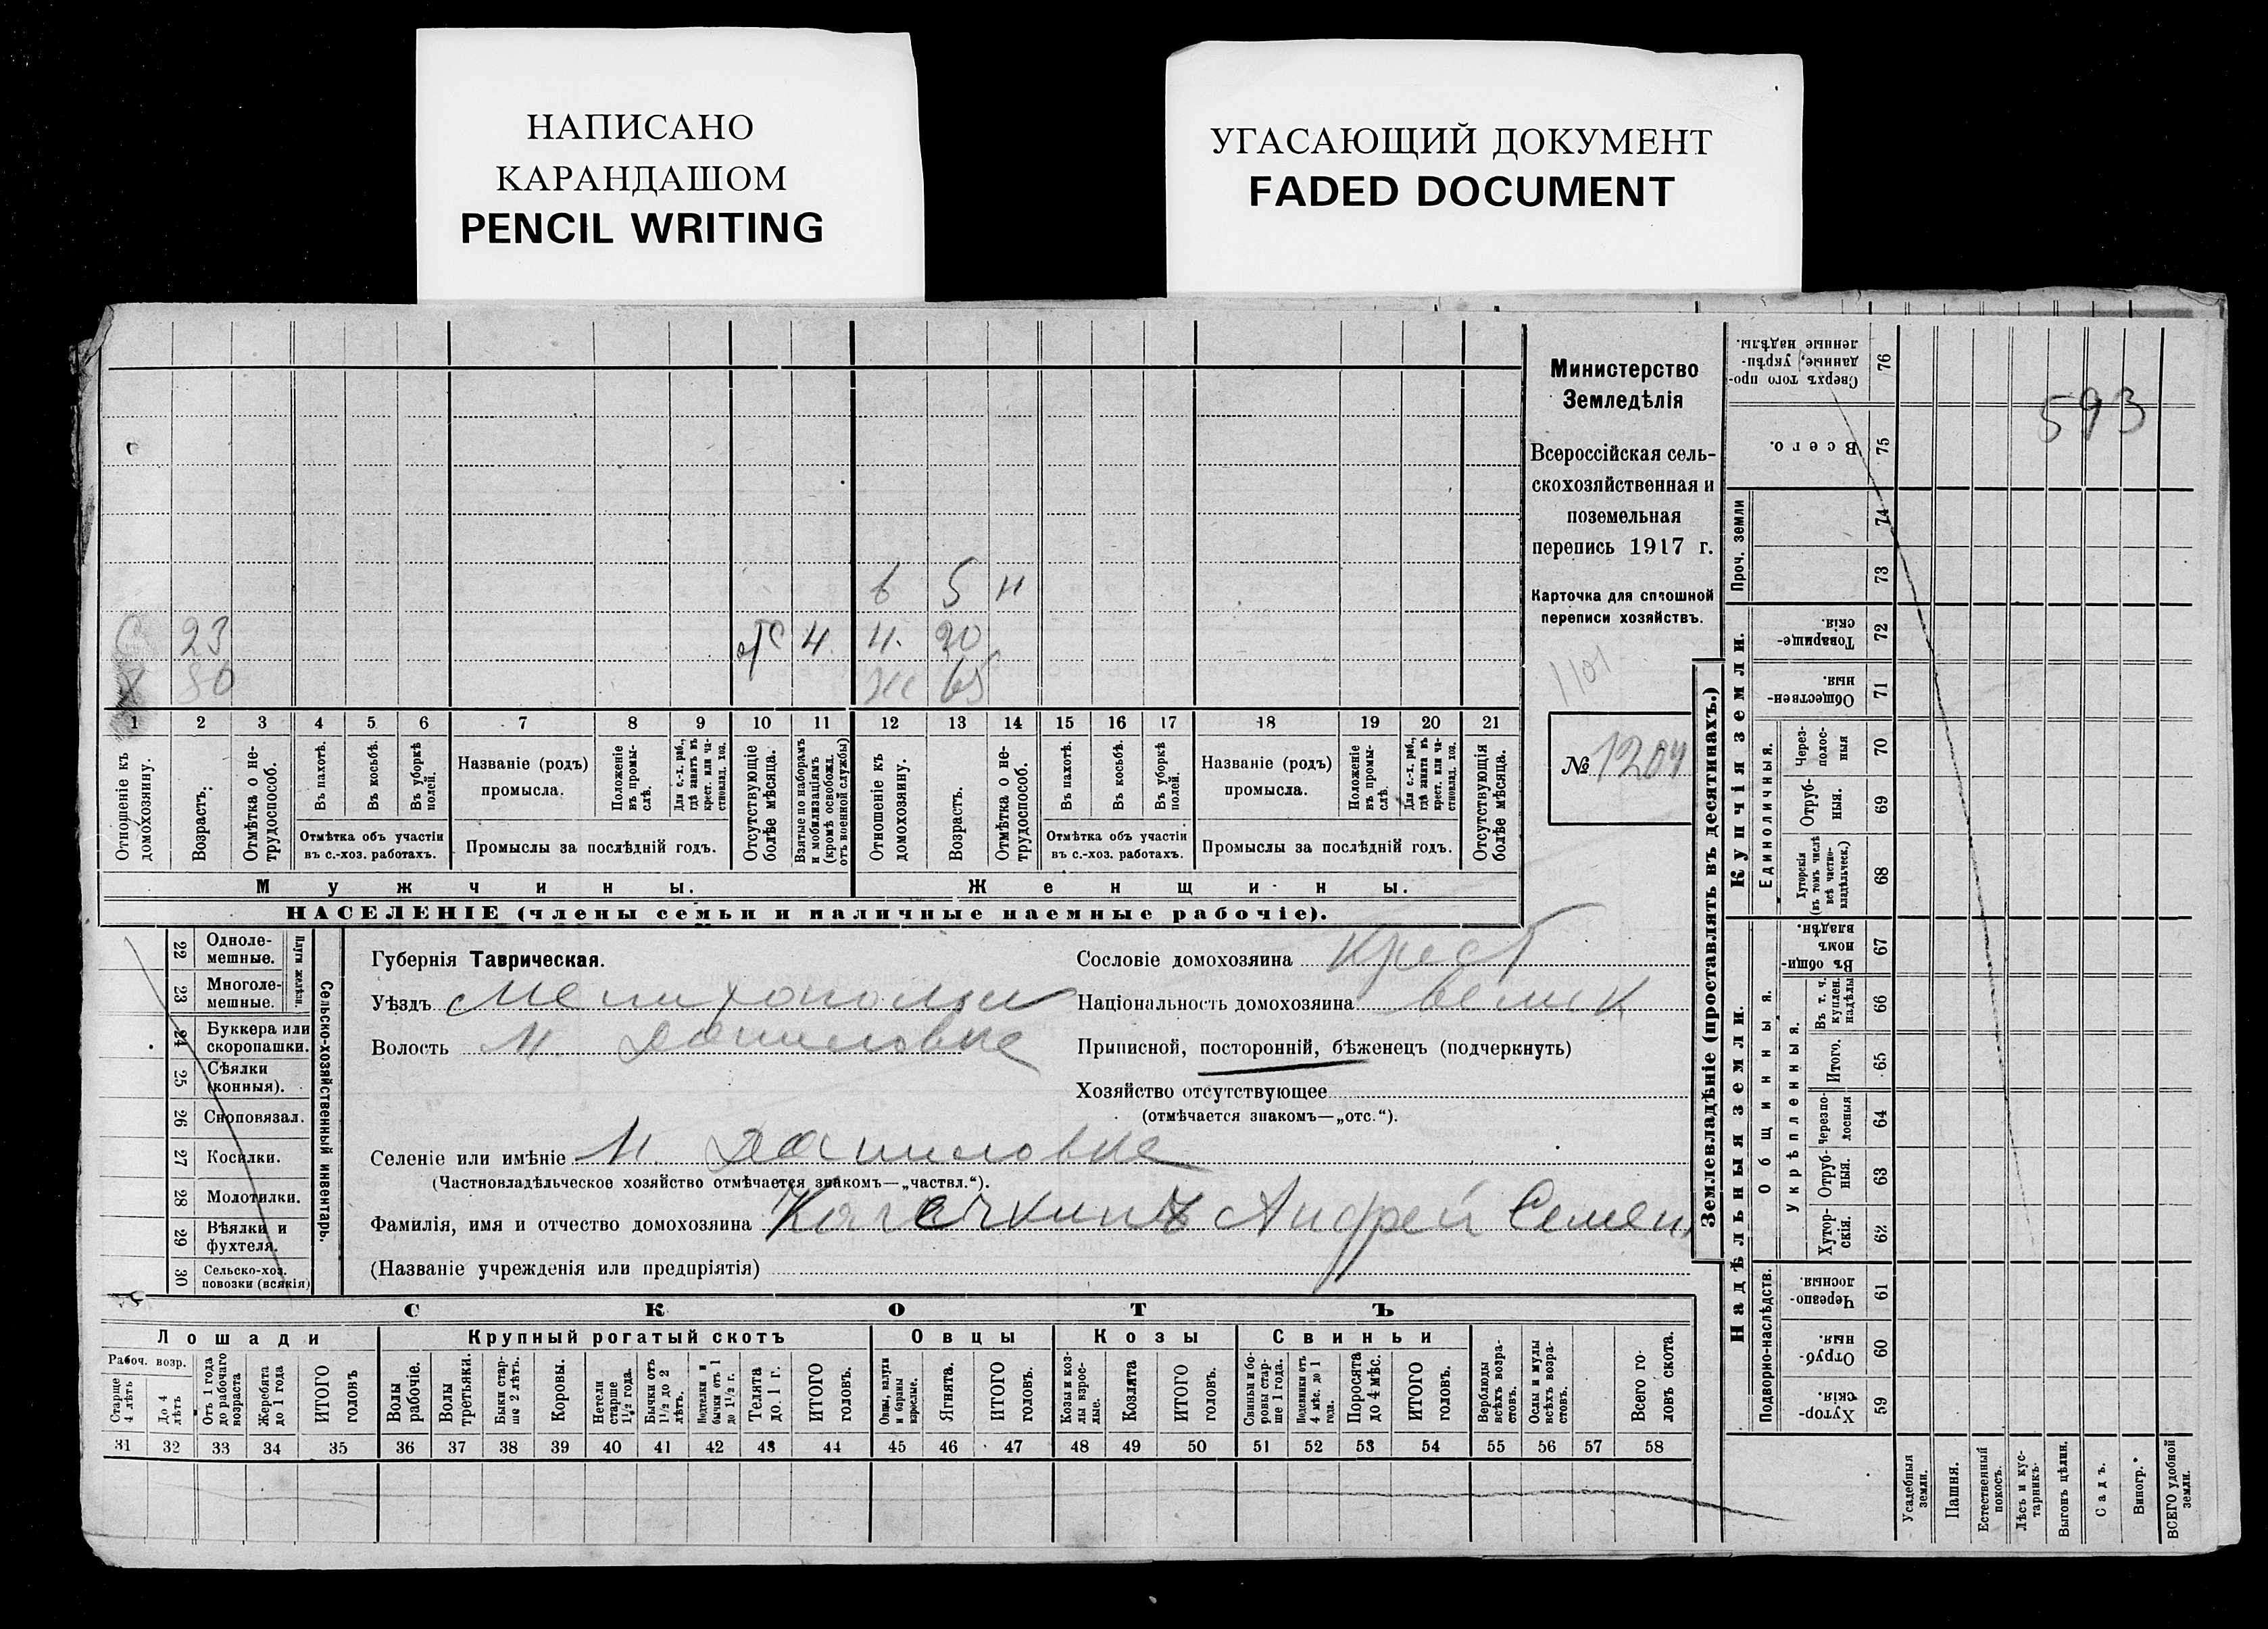 НАПИСАНО
КАРАНДАШОМ
PENCIL WRITING
УГАСАЮЩИЙ ДОКУМЕНТ
FADED DOCUMENT
593
Министерство
Земледѣлія
Всероссійская сель-
скохозяйственная и
поземельная
перепись 1917 г.
Карточка для сплошной
переписи хозяйствъ.
1101
№ 1204
в 5 н
С 23 отс 4 4. 20
Х 80 ж 65
1 2 3 4 5 6 7 8 9 10 11 12 13 14 15 16 17 18 19 20 21
Отношеніе къ домохозяину.
Возрастъ.
Отмѣтка о не-трудоспособ.
Въ пахотѣ.
Въ косьбѣ.
Въ уборкѣ полей.
Отмѣтка объ участіи
въ с.-хоз. работахъ.
Названіе (родъ)
промысла.
Положеніе въ промы-слѣ.
Для с.-х. раб., гдѣ занятъ въ крест. или ча-стновлад. хоз.
Промыслы за послѣдній годъ.
Отсутствующіе болѣе мѣсяца.
Взятые по наборамъ и мобилизаціямъ (кромѣ освобожд. отъ военной службы)
Отношеніе къ домохозяину.
Возрастъ.
Отмѣтка о не-трудоспособ.
Въ пахотѣ.
Въ косьбѣ.
Въ уборкѣ полей.
Отмѣтка объ участіи
въ с.-хоз. работахъ.
Названіе (родъ)
промысла.
Положеніе въ промы-слѣ.
Для с.-х. раб., гдѣ занята въ крест. или ча-стновлад. хоз.
Промыслы за послѣдній годъ.
Отсутствующія болѣе мѣсяца.
Мужчины.
Женщины.
НАСЕЛЕНІЕ (члены семьи и наличные наемные рабочіе).
Сельско-хозяйственный инвентарь.
Плуги желѣзн.
22 Одноле-мешные.
23 Многоле-мешные.
24 Буккера или скоропашки.
25 Сѣялки (конныя).
26 Сноповязал.
27 Косилки.
28 Молотилки.
29 Вѣялки и фухтеля.
30 Сельско-хоз. повозки (всякія)
Губернія Таврическая.
Уѣздъ
Волость
Сословіе домохозяина Крест
Національность домохозяина Велик
Приписной, посторонній, бѣженецъ (подчеркнуть)
Хозяйство отсутствующее
(отмѣчается знакомъ—„отс.“).
Селеніе или имѣніе
(Частновладѣльческое хозяйство отмѣчается знакомъ—„частвл.“).
Фамилія, имя и отчество домохозяина Андрей Семен.
(Названіе учрежденія или предпріятія)
СКОТЪ
Лошади
Крупный рогатый скотъ
Овцы
Козы
Свиньи
Рабоч. возр.
Старше 4 лѣтъ
До 4 лѣтъ
Отъ 1 года до рабочаго возраста
Жеребята до 1 года
ИТОГО головъ
Волы рабочіе.
Волы третьяки.
Быки стар-ше 2 лѣтъ.
Коровы.
Нетели старше 1½ года.
Бычки отъ 1½ до 2 лѣтъ.
Подтелки и бычки отъ 1 до 1½ г.
Телята до 1 г.
ИТОГО головъ.
Овцы, валухи и бараны взрослые.
Ягнята.
ИТОГО головъ.
Козы и коз-лы взрос-лые.
Козлята
ИТОГО головъ.
Свиньи и бо-ровы стар-ше 1 года.
Подсвинки отъ 4 мѣс. до 1 года.
Поросята до 4 мѣс.
ИТОГО головъ.
Верблюды всѣхъ возра-стовъ.
Ослы и мулы всѣхъ возра-стовъ.
Всего го-ловъ скота.
31 32 33 34 35 36 37 38 39 40 41 42 43 44 45 46 47 48 49 50 51 52 53 54 55 56 57 58
Землевладѣніе (проставлять въ десятинахъ.)
Надѣльныя земли.
Купчія земли.
Проч. земли
Подворно-наслѣдств.
Общинныя.
Укрѣпленныя.
Единоличныя.
59 Хутор-скія.
60 Отруб-ныя.
61 Черезпо-лосныя.
62 Хутор-скія.
63 Отруб-ныя.
64 Черезпо-лосныя
65 Итого.
66 Въ т. ч. куплен. надѣлы
67 Въ общи-номъ владѣн.
68 Хуторскія (въ томъ числѣ всѣ частно-владѣльческ.)
69 Отруб-ныя.
70 Через-полос-ныя
71 Обществен-ныя.
72 Товарище-скія.
73
74
75 Всего.
76 Сверхъ того про-данные, укрѣп-ленные надѣлы.
Усадебныя земли.
Пашня.
Естественный покосъ.
Лѣсъ и кус-тарникъ.
Выгонъ цѣлин.
Садъ.
Виногр.
ВСЕГО удобной земли.